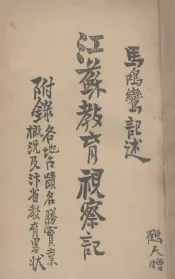 馬鳴鸞記述
鶴天贈
江蘇教育視察記
附錄各地古蹟名勝實業
概況及汴省教育畧狀